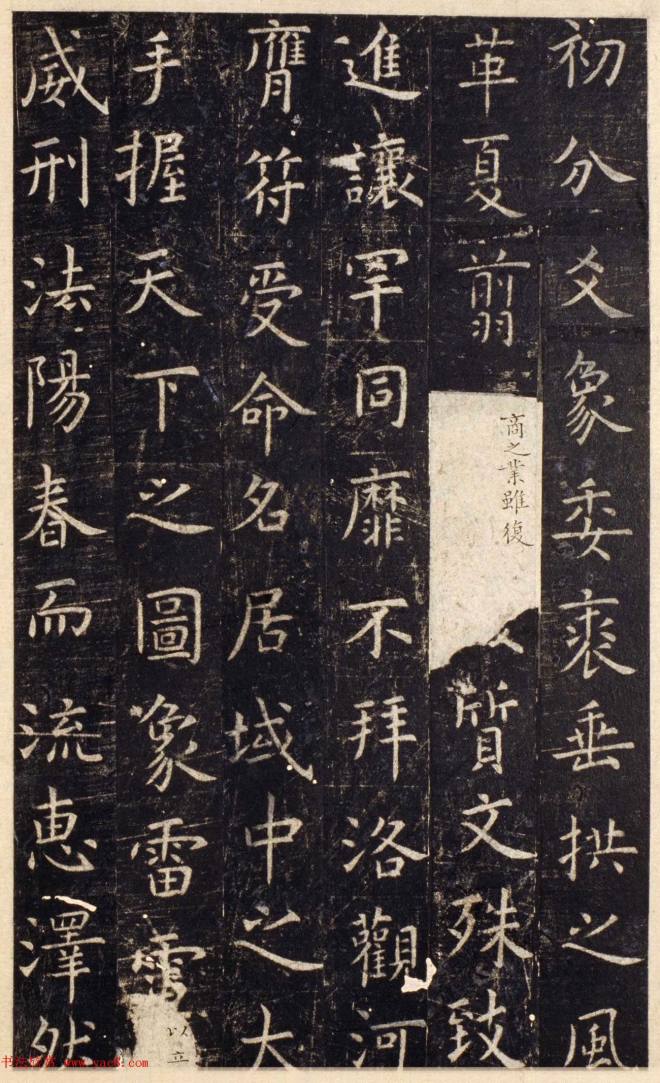 初分爻象委裘垂拱之風
革夏翦商之業雖復質文殊致
進讓罕同靡不拜洛觀河
膺符受命名居域中之大
手握天下之圖象雷電以立
威刑法陽春而流恵澤然
书法欣赏 www.yac8.com